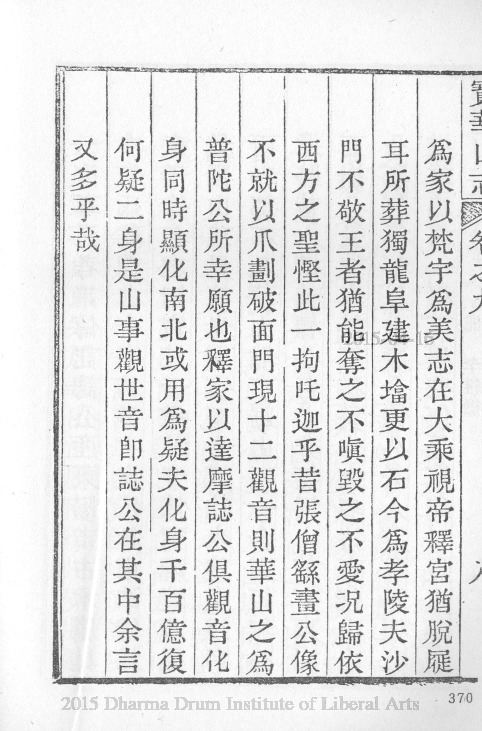 寶華山志 卷之九 八
爲家以梵宇爲美志在大乘視帝釋宮猶脫屣
耳所葬獨龍阜建木墖更以石今爲孝陵夫沙
門不敬王者猶能奪之不嗔毀之不愛況歸依
西方之聖慳此一拘吒迦乎昔張僧繇畫公像
不就以爪劃破面門現十二觀音則華山之爲
普陀公所幸願也釋家以達摩誌公俱觀音化
身同時顯化南北或用爲疑夫化身千百億復
何疑二身是山事觀世音卽誌公在其中余言
又多乎哉
370
2015 Dharma Drum Institute of Liberal Arts